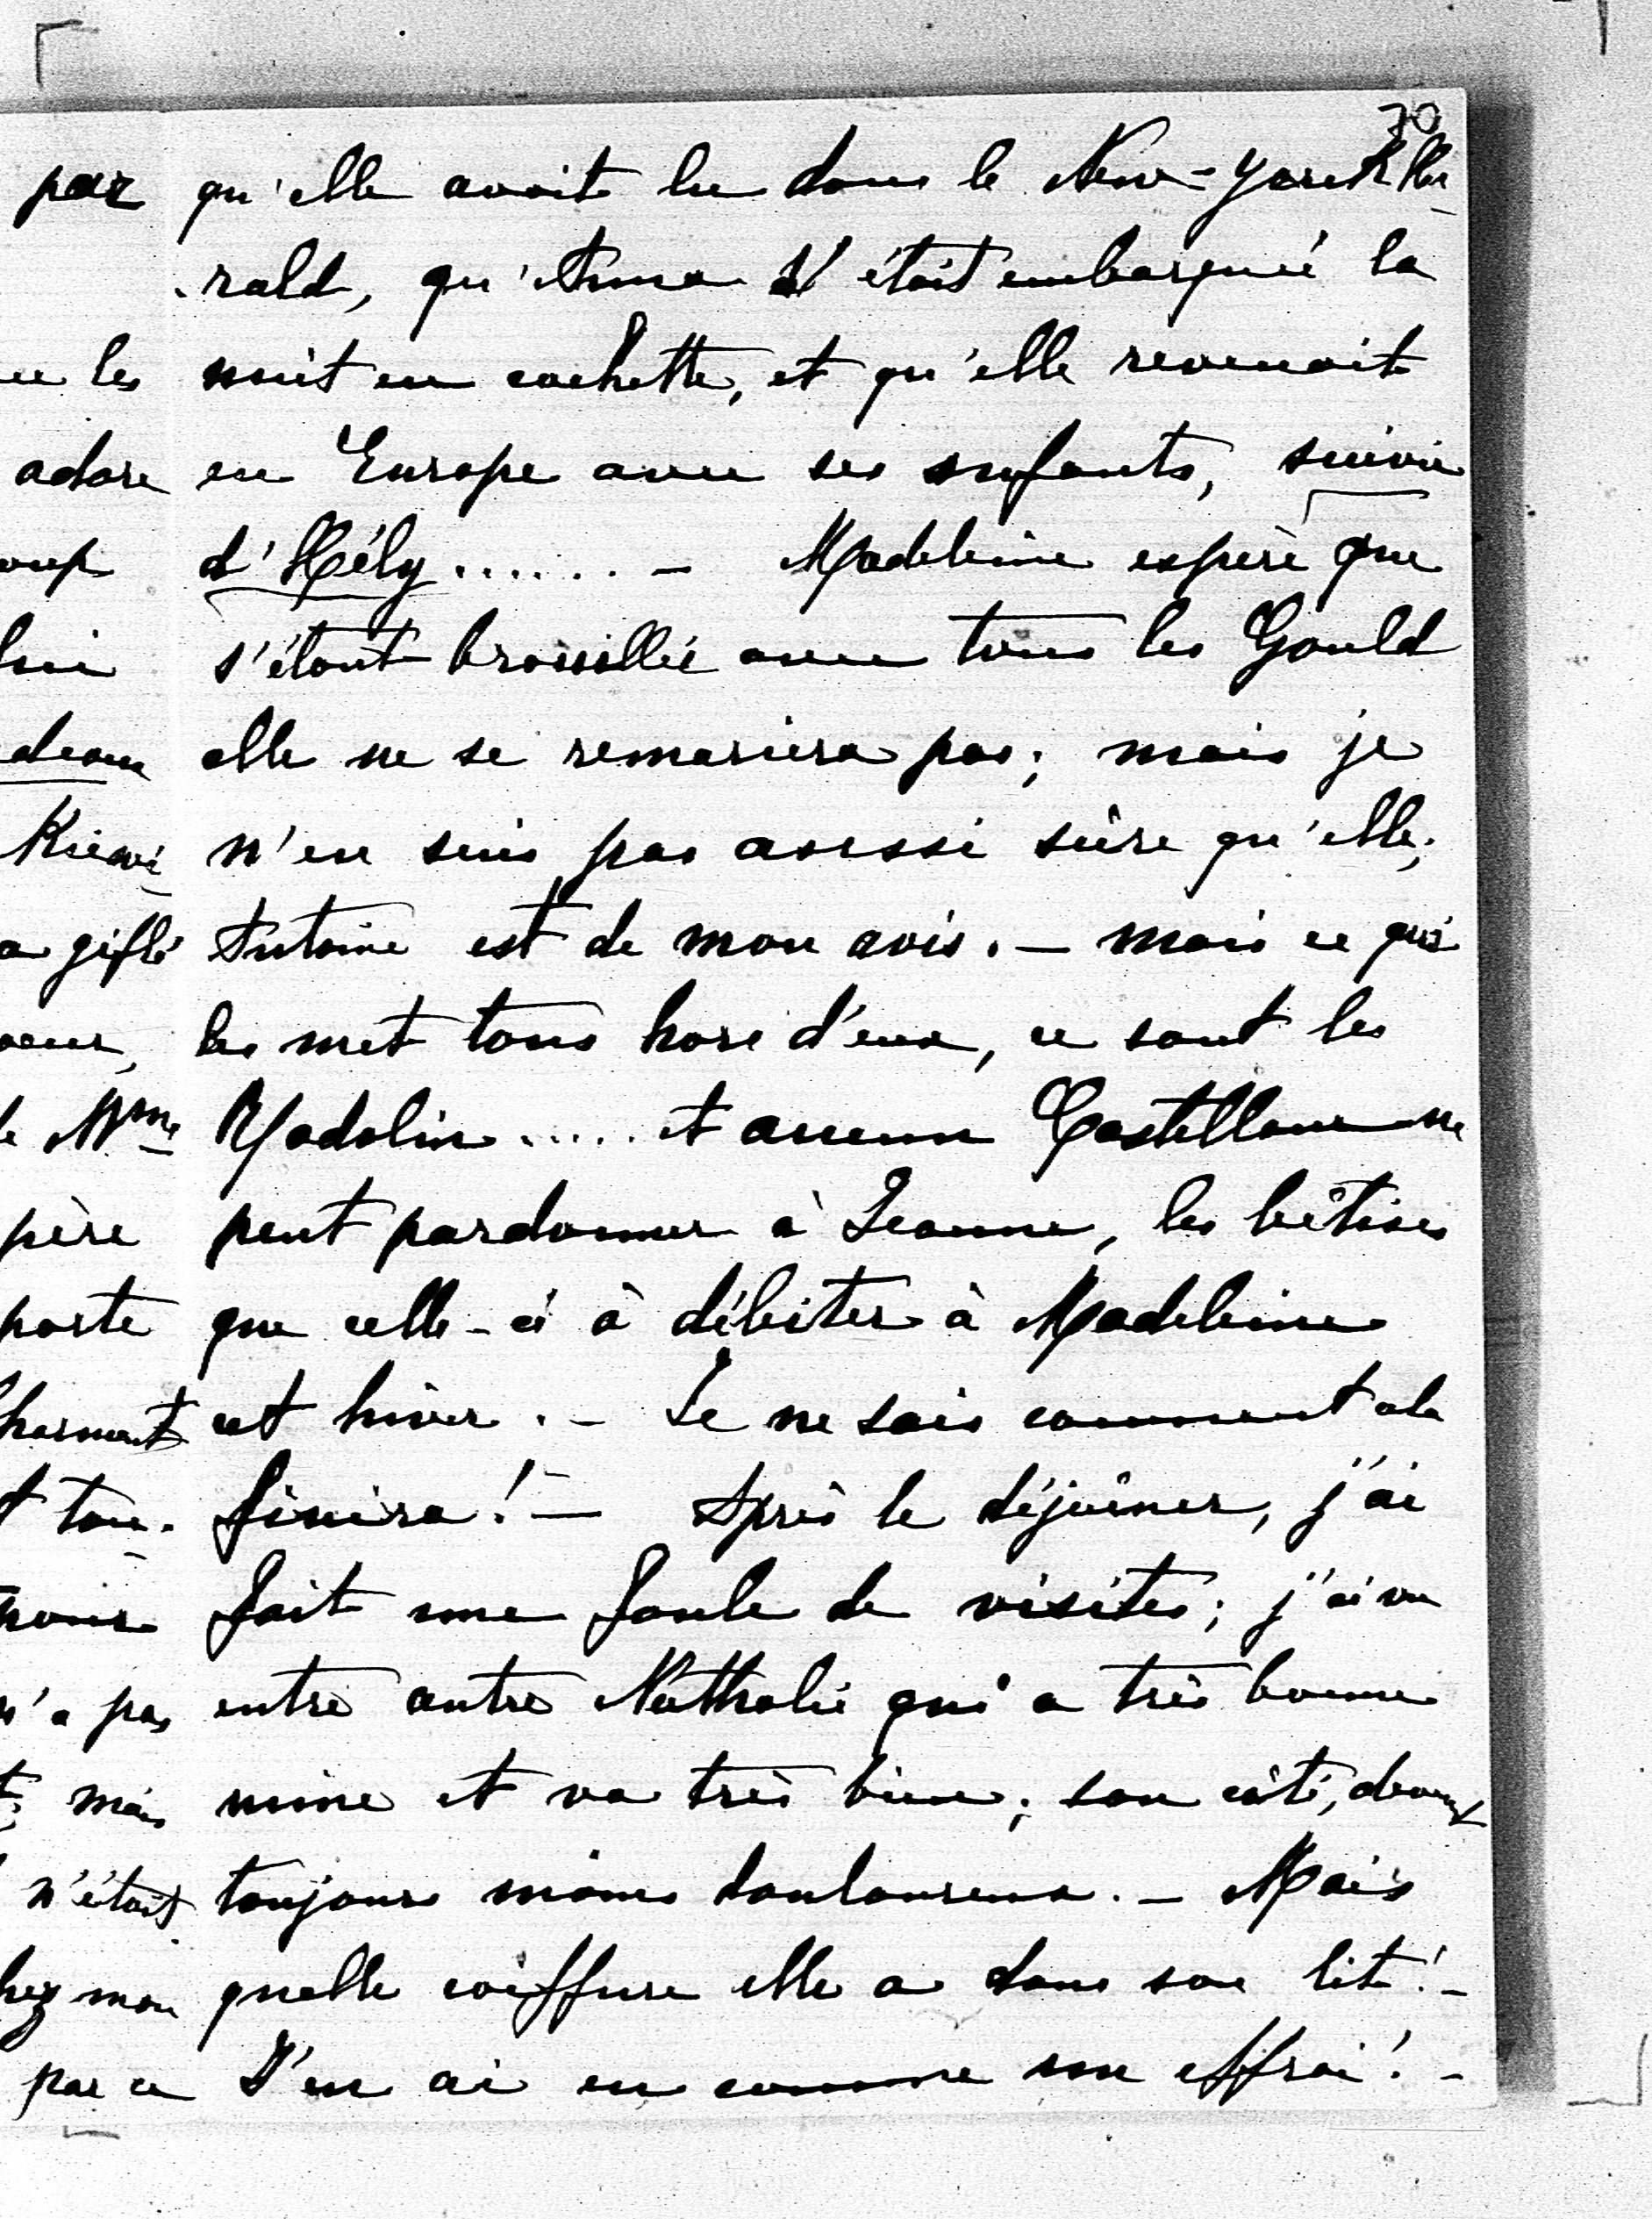 70
qu'elle avait lu dans le New-York He-
-rald, qu'Anna s'était embarquée la
nuit en cachette, et qu'elle revenait
en Europe avec ses enfants, suivie
d'Hély ...... - Madeleine espère que
s'étant brouillée avec tous les Gould
elle ne se remariera pas; mais je
n'en suis pas aussi sûre qu'elle;
Antoine est de mon avis. - mais ce qui
les met tous hors d'eux, ce sont les
..... et aucun Castellane ne
peut pardonner à Jeanne, les bêtises
que celle-ci à débiter à Madeleine
cet hiver. - Je ne sais comment cela
finira! - Après le déjeûner, j'ai
fait une foule de visites; j'ai vu
entre autre Nathalie qui a très bonne
mine et va très bien; son côté, devient
toujours moins douloureux. - Mais
quelle coiffure elle a dans son lit! -
J'en ai eu comme un effroi! -
par
les
adore
oup
lui
a giflé
de Mme
père
porte
t tou-
n'a pas
mais
n'était
hez mon
par ce